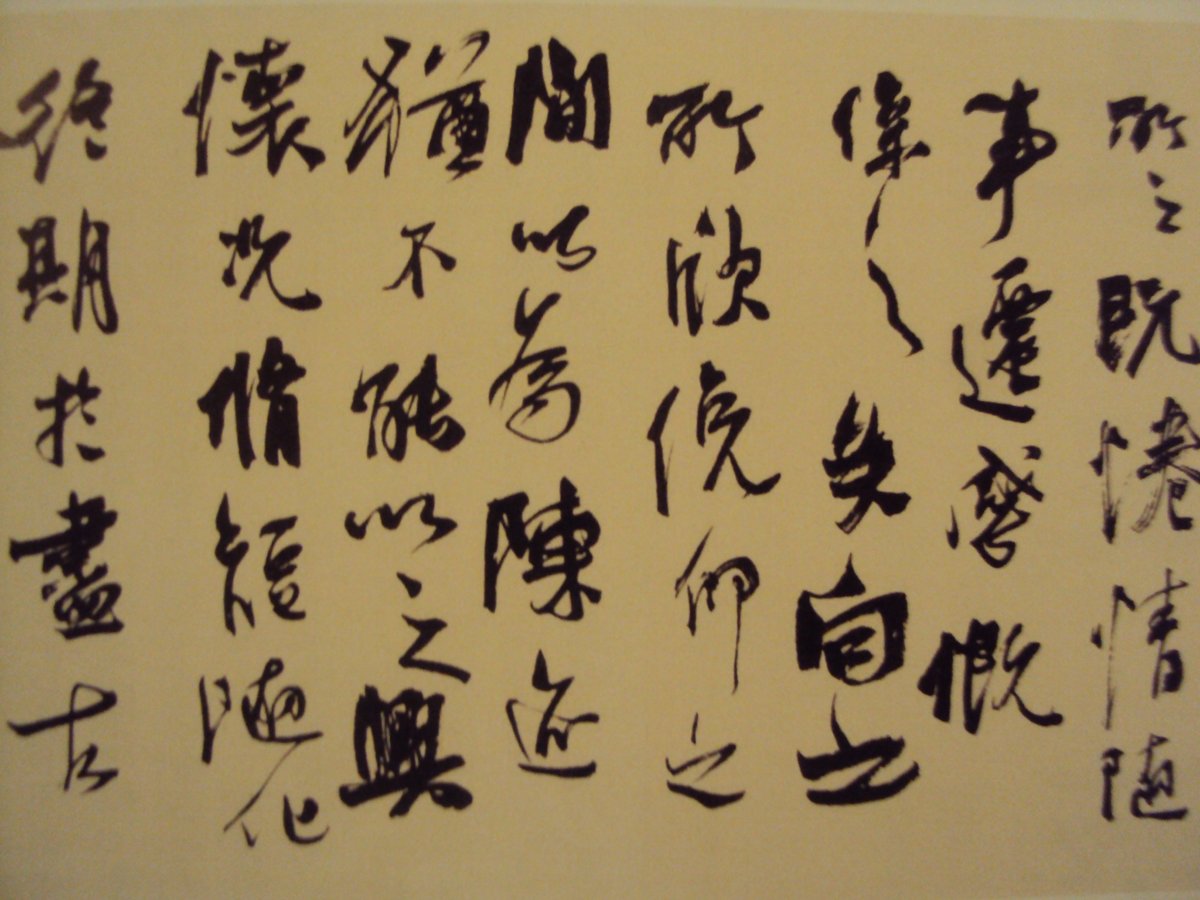 所之既惓情随
事遷感慨
係之矣向之
所欣俛仰之
間以為陳迹
猶不能以之興
懷况脩短随化
終期於盡古